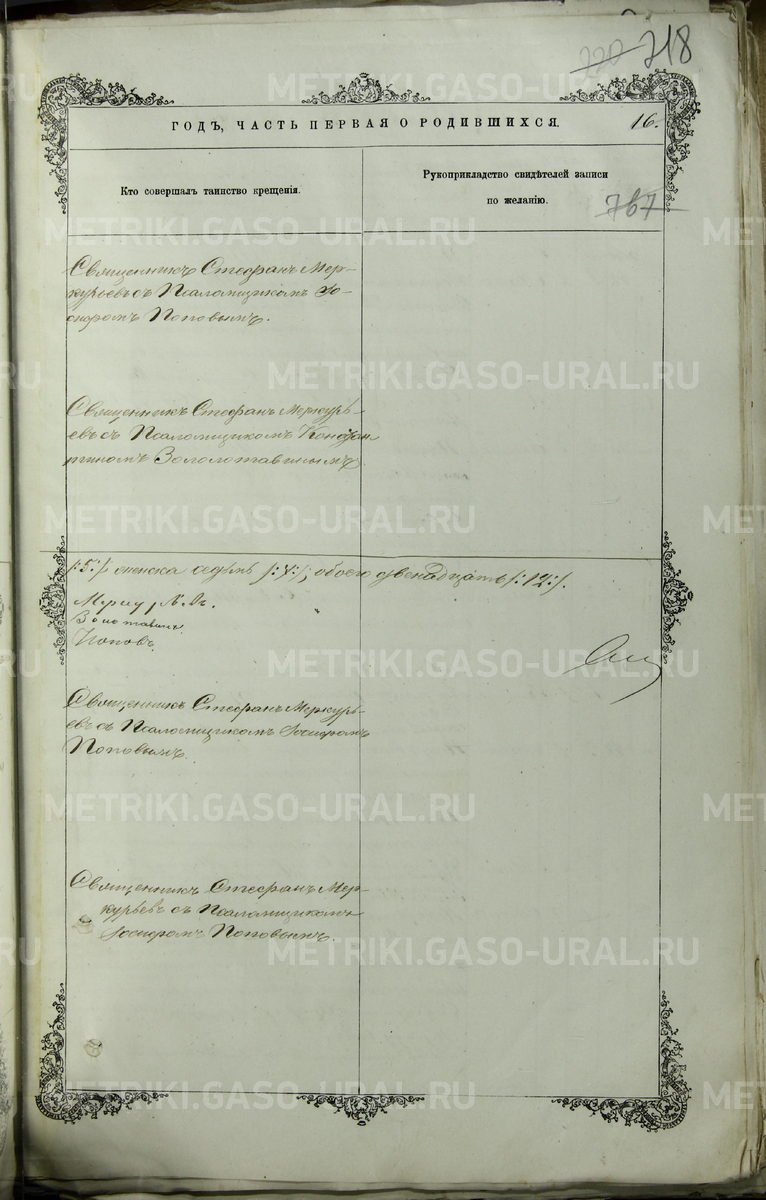 220 218
ГОДЪ, ЧАСТЬ ПЕРВАЯ О РОДИВШИХСЯ.
16.
Кто совершалъ таинство крещенія.
Рукоприкладство свидѣтелей записи
по желанію.
767
Священникъ Стефанъ Мер-
курьевъ съ Псаломщикомъ Іо-
сифомъ Поповымъ.
Священникъ Стефанъ Меркурь-
евъ съ Псаломщикомъ Констан
тиномъ Золотавинымъ
/:5:/ женска седмь /:7:/, обоего двенадцать /:12:/.
Золотавинъ
Поповъ.
Священникъ Стефанъ Меркурь-
евъ съ Псаломщикомъ Іосифомъ
Поповымъ.
Священникъ Стефанъ Мер-
курьевъ съ Псаломщикомъ
Іосифомъ Поповымъ.
METRIKI.GASO-URAL.RU